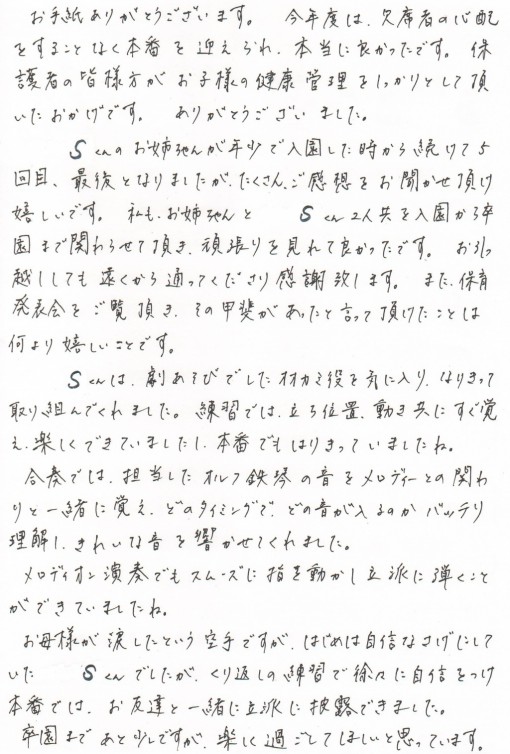 お手紙ありがとうございます。 今年度は、欠席者の心配
をすることなく本番を迎えられ、本当に良かったです。保
護者の皆様方がお子様の健康管理をしっかりとして頂
いたおかげです。 ありがとうございました。
Sくんのお姉ちゃんが年少で入園した時から続けて5
回目、最後となりましたが、たくさんご感想をお聞かせ頂け
嬉しいです。 私も、お姉ちゃんと Sくん2人共を入園から卒
園まで関わらせて頂き、頑張りを見れて良かったです。 お引っ
越ししても遠くから通ってくださり感謝致します。 また、保育
発表会をご覧頂き、その甲斐があったと言って頂けたことは
何より嬉しいことです。
Sくんは、劇あそびでしたオオカミ役を気に入り、なりきって
取り組んでくれました。練習では、立ち位置、動き共にすぐ覚
え、楽しくできていましたし、本番でもはりきっていましたね。
合奏では、担当したオルフ鉄琴の音をメロディーとの関わ
りと一緒に覚え、どのタイミングで、どの音が入るのかバッチリ
理解し、きれいな音を響かせてくれました。
メロディオン演奏でもスムーズに指を動かし立派に弾くこと
ができていましたね。
お母様が涙したという空手ですが、はじめは自信なさげにして
いた Sくんでしたが、くり返しの練習で徐々に自信をつけ
本番では、お友達と一緒に立派に披露できました。
卒園まであと少しですが、楽しく過ごしてほしいと思っています。